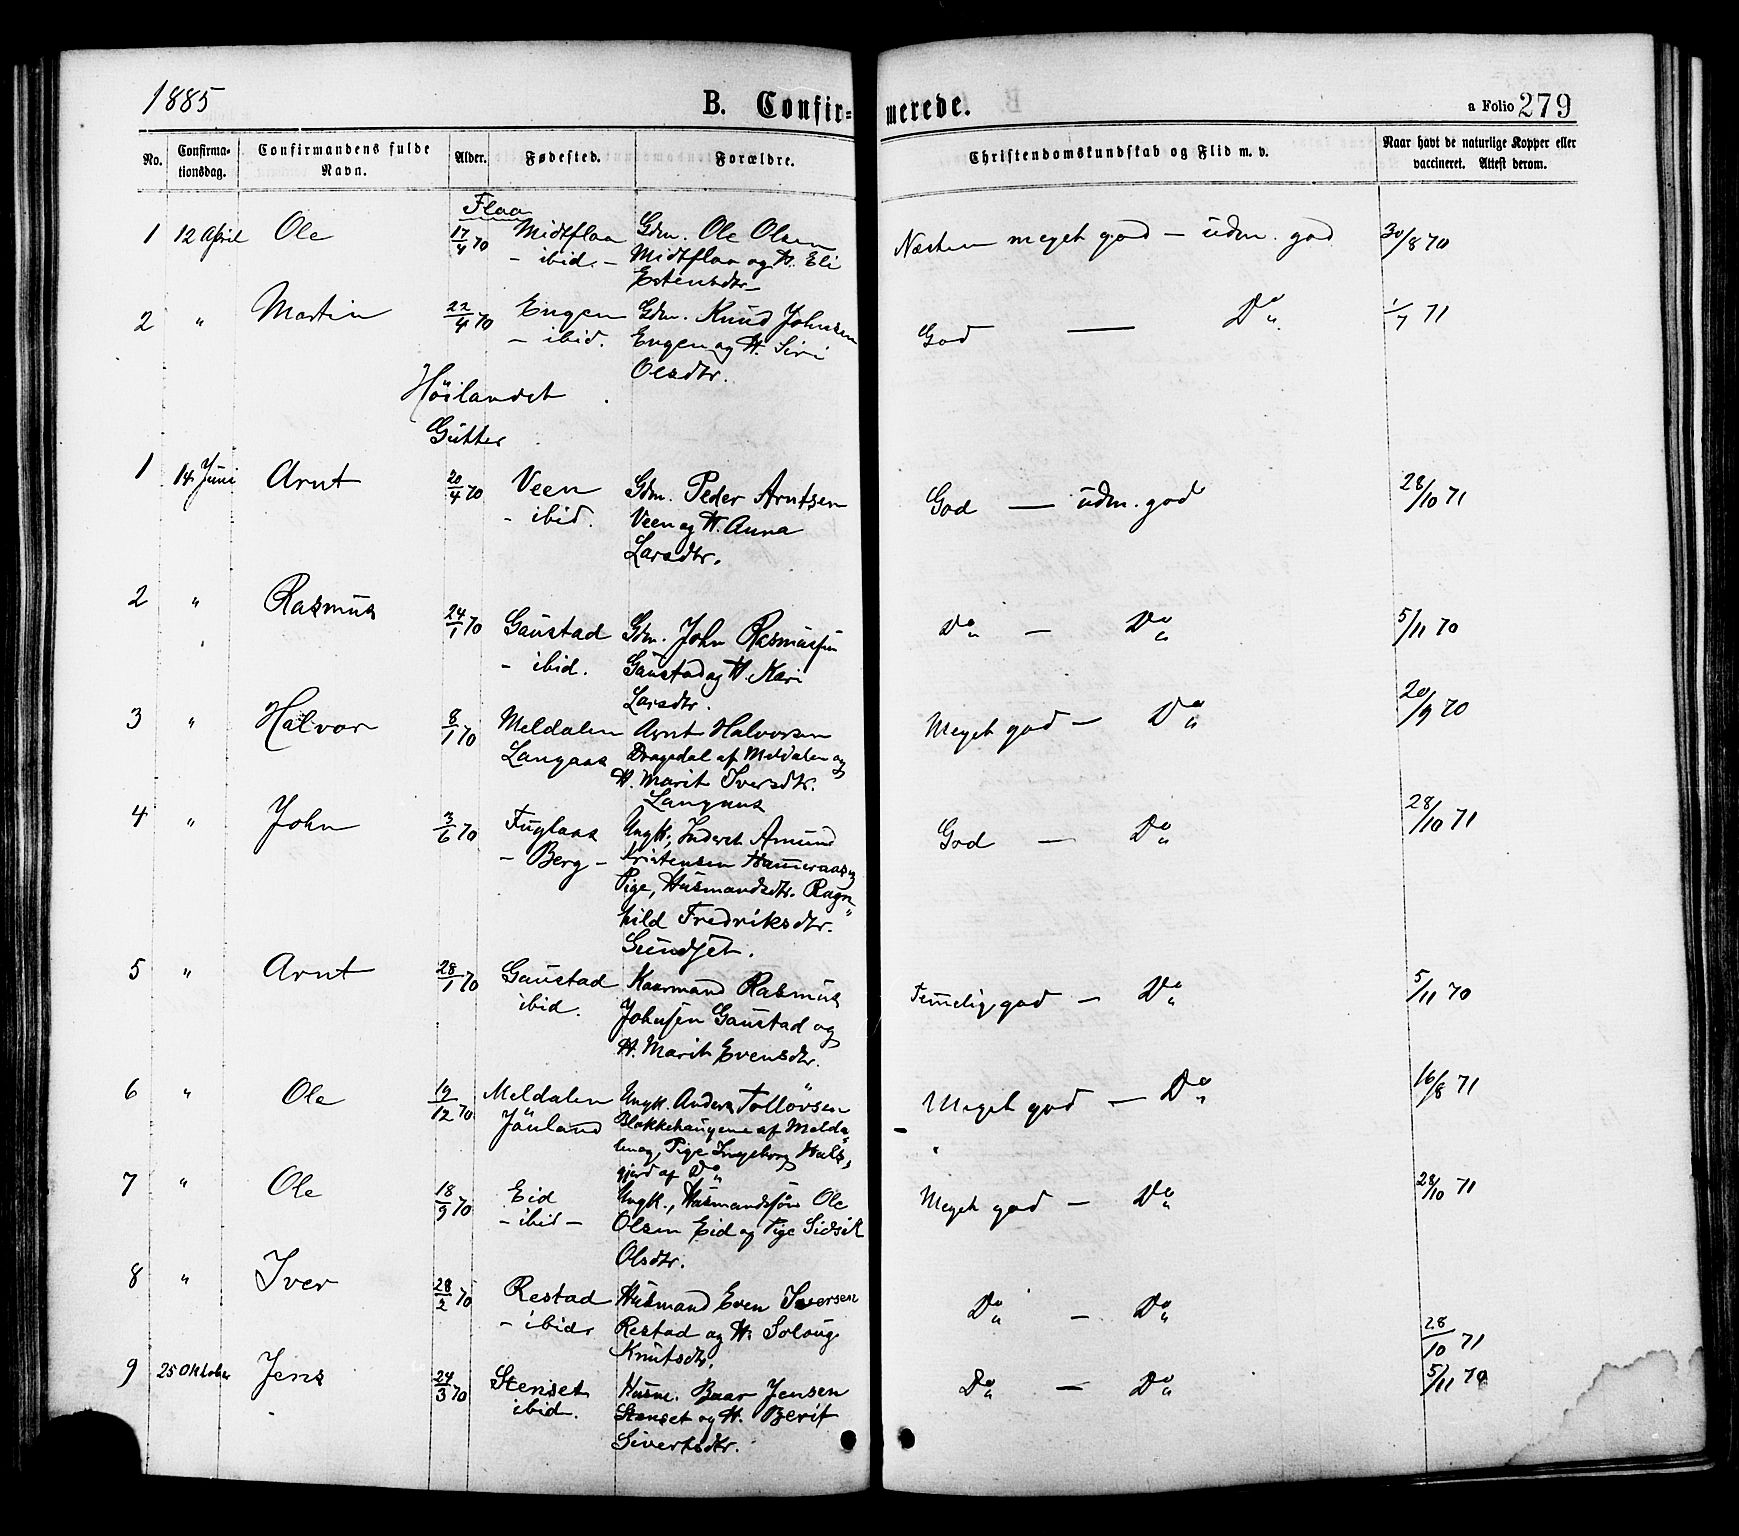 1885
B. Confir=
merede.
a Folio 279
No. Confirma-tionsdag. Confirmandens fulde Navn. Alder. Fødested. Forældre. Christendomskundskab og Flid m. v. Naar havt de naturlige Kopper eller vaccineret. Attest derom.
Flaa
1 12 April Ole 17/4 70 Midtflaa Gdm. Ole Olsen Næsten meget god – udm. god 30/8 70
– ibid. – Midtflaa og H. Eli
Estensdtr.
2 " Martin 22/4 70 Engen Gdm. Knud Johnsen God — Do 1/7 71
– ibid. Engen og H. Siri
Olsdtr.
Höilandet
Gutter
1 14 Juni Arnt 20/4 70 Veen Gdm. Peder Arntsen God — udm. god 28/10 71
– ibid. Veen og H. Anna
Larsdtr.
2 " Rasmus 24/1 70 Gaustad Gdm. John Rasmussen Do – Do 5/11 70
– ibid. Gaustad og H. Kari
Larsdtr.
3 " Halvor 8/1 70 Meldalen Arnt Halvorsen Meget god – Do 20/9 70
Langaas Dragsdal af Meldalen og
H. Marit Iversdtr.
Langaas
4 " John 3/6 70 Fuglaas Ungk., Inderst Amund God – Do 28/10 71
– Berg – Kristensen Hammeraas og
Pige, Husmandsdtr. Ragn
hild Fredriksdtr.
Sundset.
5 " Arnt 28/1 70 Gaustad Kaarmand Rasmus Temmelig god – Do 5/11 70
ibid. Johnsen Gaustad og
H. Marit Evensdtr.
6 " Ole 19/12 70 Meldalen Ungk. Anders Tollövsen Meget god – Do 16/8 71
Jönland Blokkehaugene af Melda
len og Pige Ingeborg Hals,
gjerd af Do
7 " Ole 18/9 70 Eid Ungk., Husmandssøn Ole Meget god – Do 28/10 71
– ibid – Olsen Eid og Pige Sidsil
Olsdtr.
8 " Iver 28/2 70 Restad Husmand Even Iversen Do – Do 28/10 71
– ibid. Restad og H. Solaug
Knutsdtr.
9 25 Oktober Jens 24/3 70 Stenset Husm. Baar Jensen Do – Do 5/11 70
ibid. Stenset og H. Berit
Sivertsdtr.